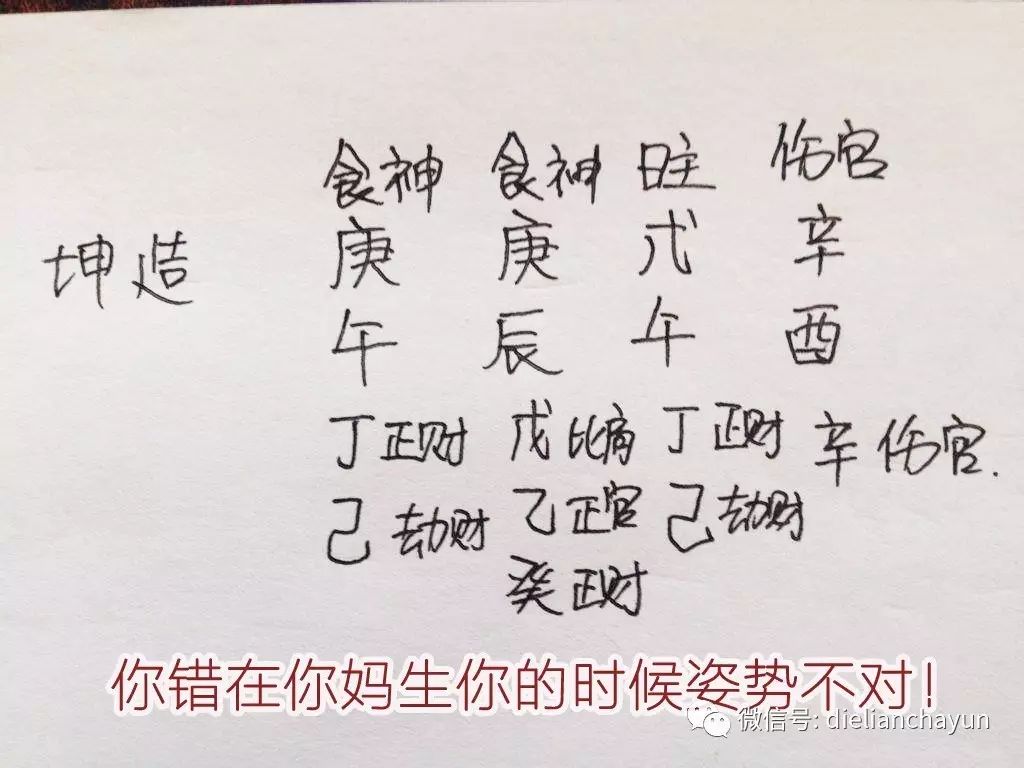 食神 食神 日主 伤官
坤造 庚 庚 戊 辛
午 辰 午 酉
丁正财 戊比肩 丁正财 辛伤官.
己劫财 乙正官 己劫财
癸正财
你错在你妈生你的时候姿势不对！
微信号: dielianchayun